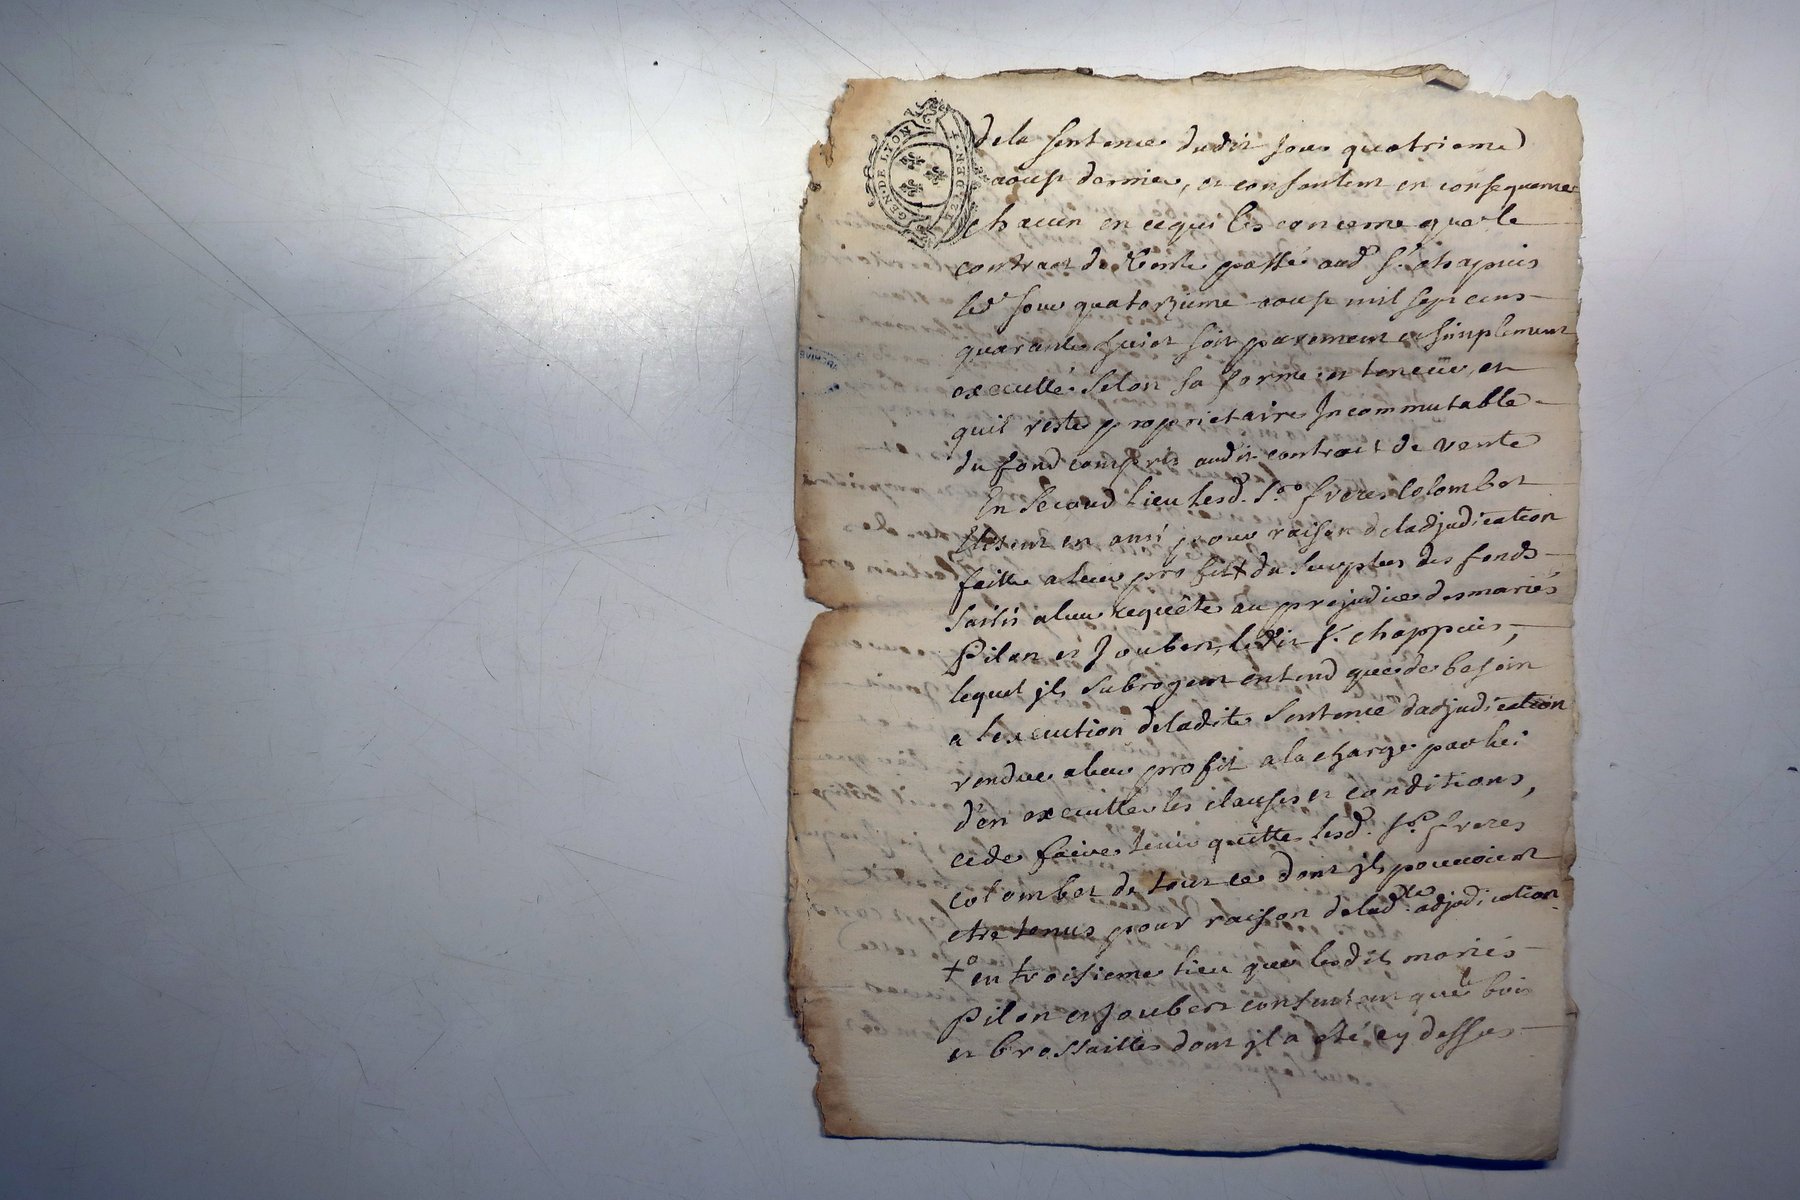 GEN·DE LYON
de la sentence dudit jour quatrieme
aoust dernier, et consentent en consequence
chacun en ce qui les concerne que le
contract de vente passé aud. Sr. chapuis
led. jour quatorzieme aoust mil sept cens
quarante huiot soit purement et simplement
executté selon sa forme et teneur, et
quil reste proprietaire Incommutable
du fond compris audit contract de vente
En second lieu lesd. Srs. freres Colombet
mettent en ausi pour raison deladjudication
faitte a leur profit du surplus des fonds
saisis a leur requête au prejudice des mariés
Pilon et Joubert, ledit Sr. chappuis,
lequel jls subrogent entend que de besoin
a lexecution deladite sentence dadjudication
rendue a leur profit a la charge par lui
d'en executter les clauses et conditions,
et de faire tenir quitte lesd. Srs. freres
colombet de tout ce dont jls pouvoient
etre tenus pour raison de lad.te adjudication
+° en troisieme lieu que lesdits mariés
Pilon et Joubert consentent que le bois
et brossailles dont jl a été cy dessus